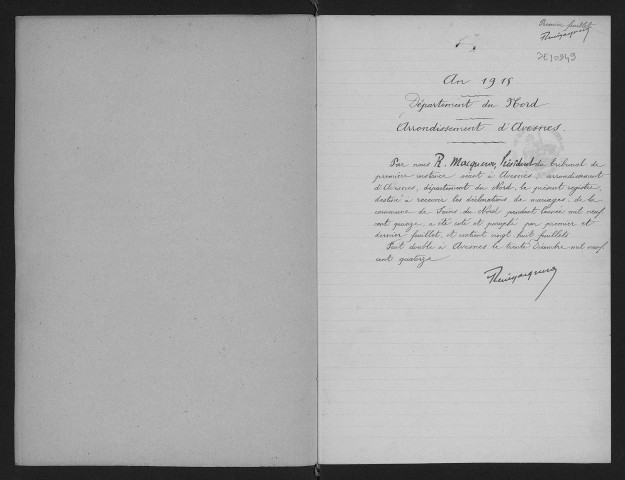 Premier feuillet
3E10949
An 1915
Département du Nord
Arrondissement d'Avesnes.
Par nous R. Macquevi, Président du tribunal de
première instance séant à Avesnes arrondissement
d'Avesnes, département du Nord, le présent registre,
destiné à recevoir les déclarations de mariages, de la
commune de Sains du Nord pendant l'année mil neuf
cent quinze, a été coté et paraphé par premier et
dernier feuillet, et contient vingt-huit feuillets.
Fait double à Avesnes le trente Décembre mil neuf
cent quatorze